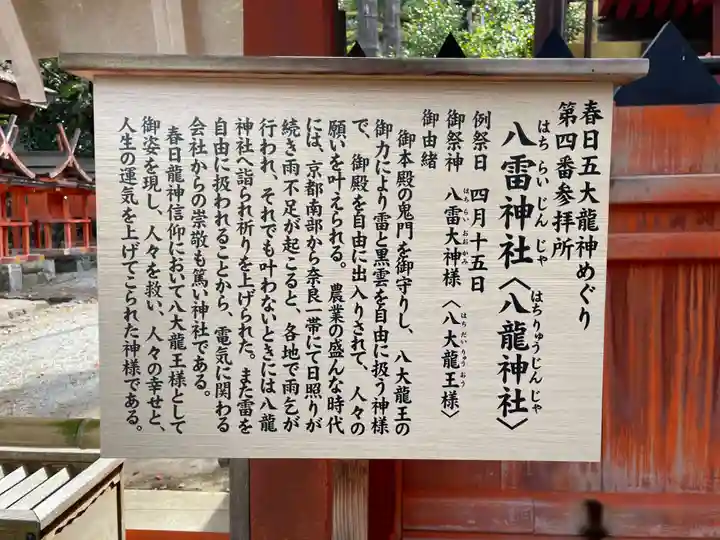 春日五大龍神めぐり
第四番参拝所
八雷神社〈八龍神社〉
はちらいじんじゃ
はちりゅうじんじゃ
例祭日　四月十五日
御祭神　八雷大神様〈八大龍王様〉
はちらいおおかみ
はちだいりゅうおう
御由緒
御本殿の鬼門を御守りし、八大龍王の
御力により雷と黒雲を自由に扱う神様
で、御殿を自由に出入りされて、人々の
願いを叶えられる。農業の盛んな時代
には、京都南部から奈良一帯にて日照りが
続き雨不足が起こると、各地で雨乞が
行われ、それでも叶わないときには八龍
神社へ詣られ祈りを上げられた。また雷を
自由に扱われることから、電気に関わる
会社からの崇敬も篤い神社である。
春日龍神信仰において八大龍王様として
御姿を現し、人々を救い、人々の幸せと、
人生の運気を上げてこられた神様である。